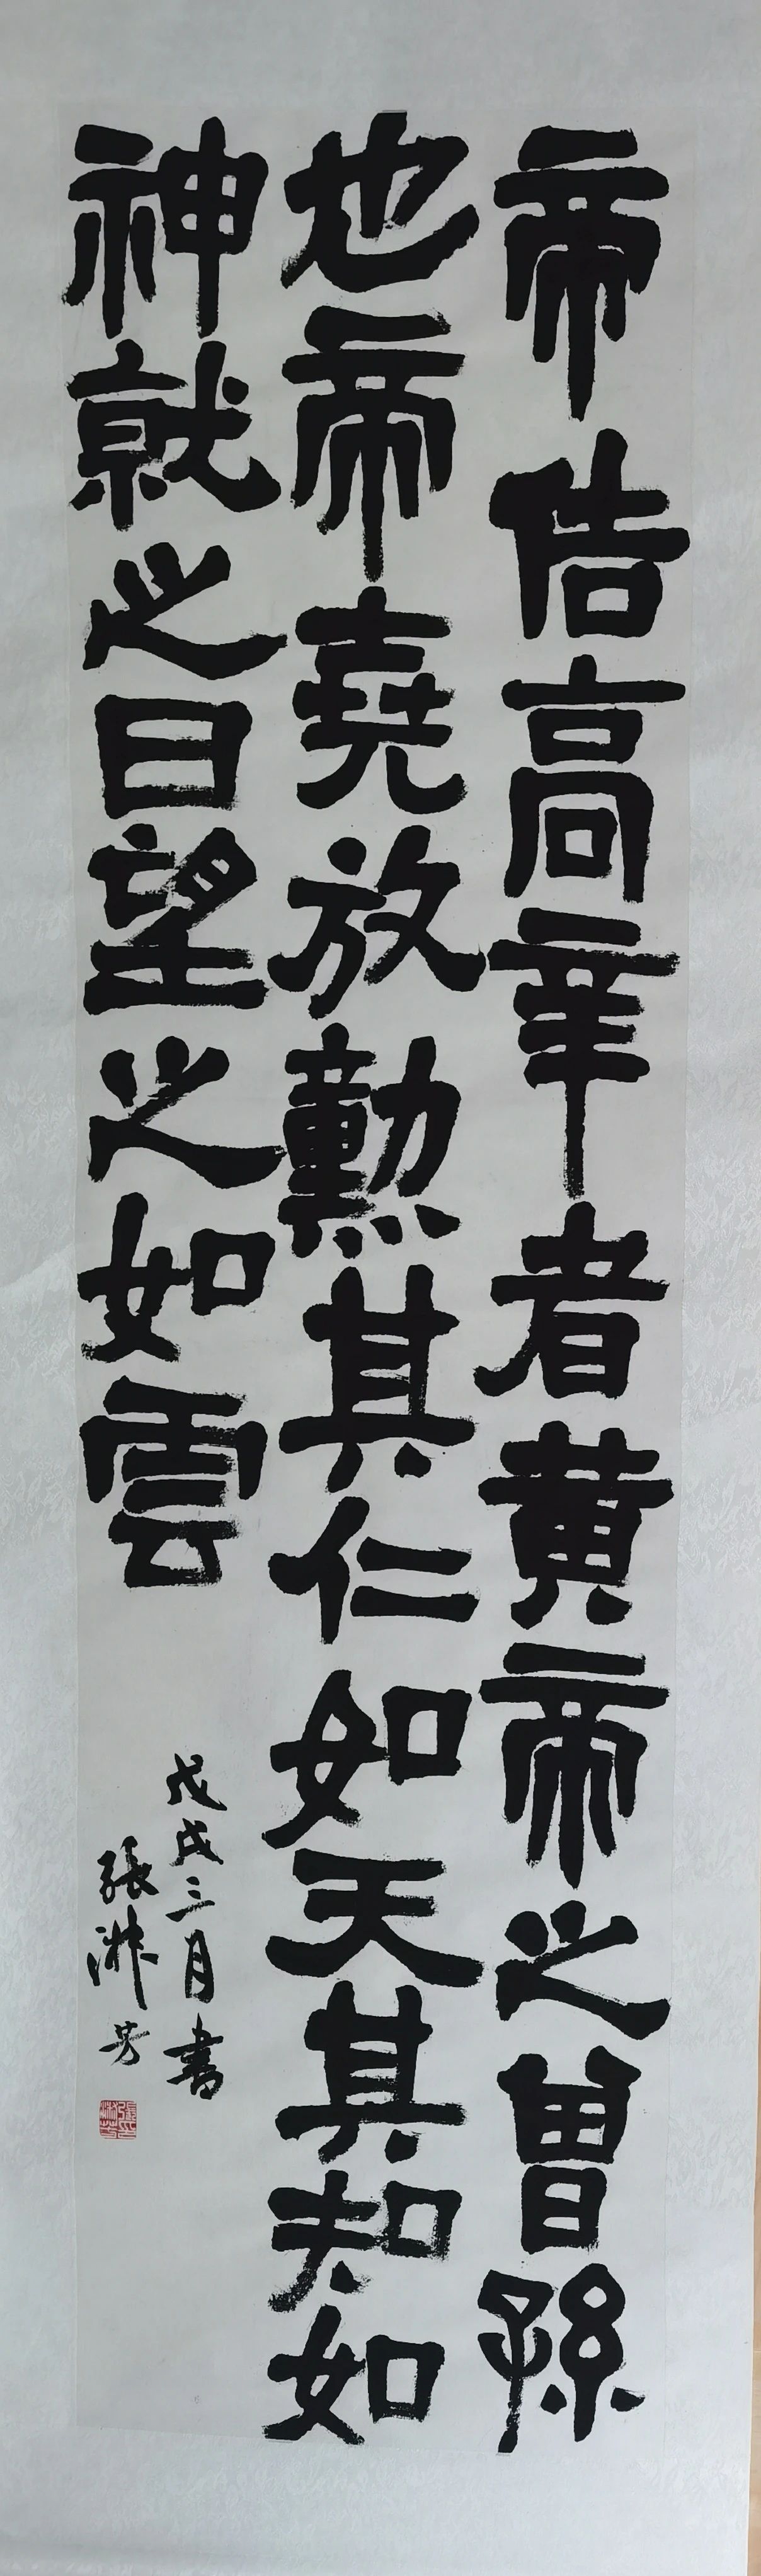 帝俈高辛者黄帝之曾孫
也帝堯放勳其仁如天其知如
神就之日望之如雲
戊戌三月書
張淋芳